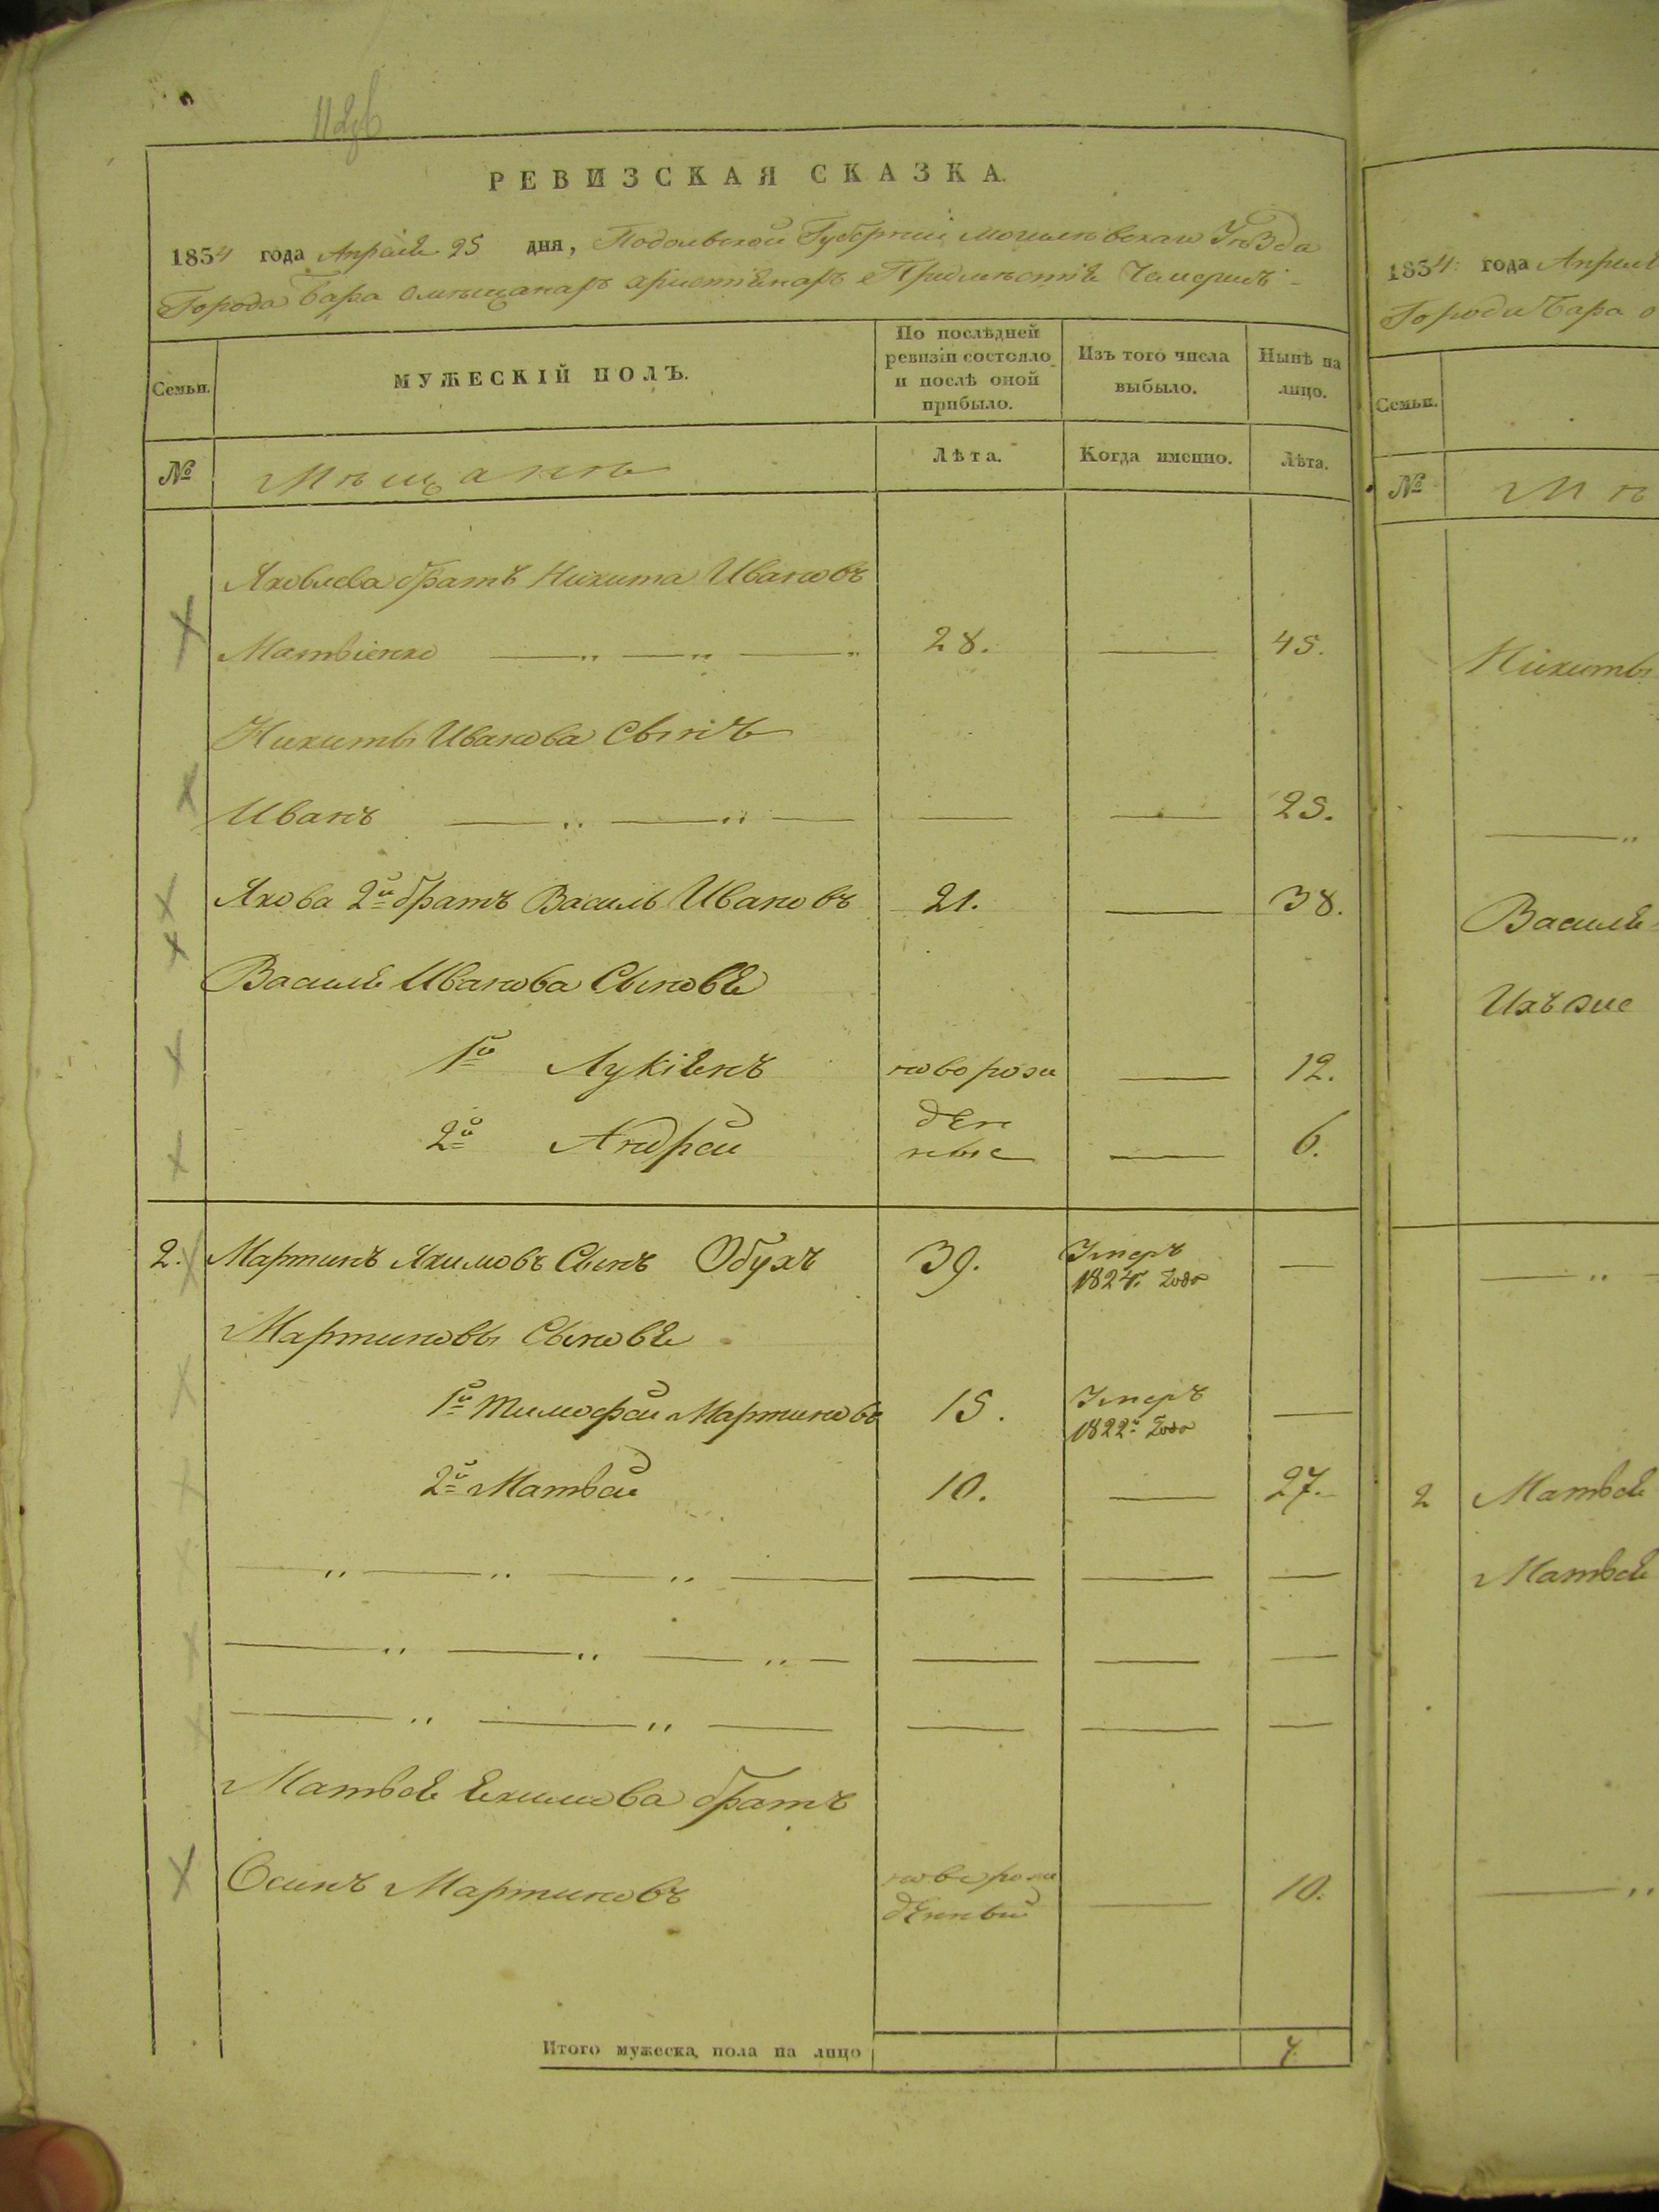 РЕВИЗСКАЯ СКАЗКА.
1834 года Апреля 25 дня, Подольской Губернии Могилевскаго Уѣзда
Города Бара о мѣщанахъ христіянахъ Предмѣстіе Чемерисъ
Семьи.
МУЖЕСКІЙ ПОЛЪ.
По послѣдней ревизіи состояло и послѣ оной прибыло.
Изъ того числа выбыло.
Нынѣ на лицо.
№
Мѣщанѣ
Лѣта.
Когда именно.
Лѣта.
Яковлева братъ Никита Ивановъ
Матвіенко 28. 45.
Никиты Иванова Сынъ
Иванъ 25.
Якова 2й братъ Василь Ивановъ 21. 38.
Василя Иванова Сыновя
1й Лукіянъ новорож 12.
2й Андрей ден ные 6.
2. Мартинъ Якимовъ Сынъ Обухъ 39. Умеръ
1824. года
Мартиновы Сыновя
1й Тимофей Мартиновъ 15. Умеръ
1822. года
2й Матвей 10. 27.
Матвея Екимова братъ
Осипъ Мартиновъ новорож
денный 10.
Итого мужеска пола на лицо 7
1834 года Апреля
Города Бара о
Семьи.
№
М ѣ
Никиты
Василя
Ихъ же
2 Матвея
Матвея